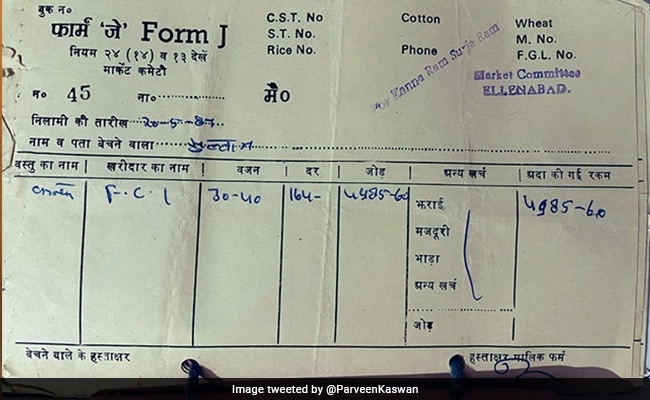 बुक न०
फार्म 'जे' Form J
नियम २४ (१४) व १३ देखें
मार्केट कमेटी
C.S.T. No
S.T. No.
Rice No.
Cotton
Phone
Wheat
M. No.
F.G.L. No.
Kanna Ram Surja Ram
Market Committee
ELLENABAD.
न० 45 ना० मै०
निलामी की तारीख
नाम व पता बेचने वाला
वस्तु का नाम | खरीदार का नाम | वजन | दर | जोड़ | अन्य खर्च | अदा की गई रकम
F.C.I 30-40 164- 4985-60 भराई 4985-60
मजदूरी
भाड़ा
अन्य खर्च
जोड़
बेचने वाले के हस्ताक्षर हस्ताक्षर मालिक फर्म
Image tweeted by @ParveenKaswan